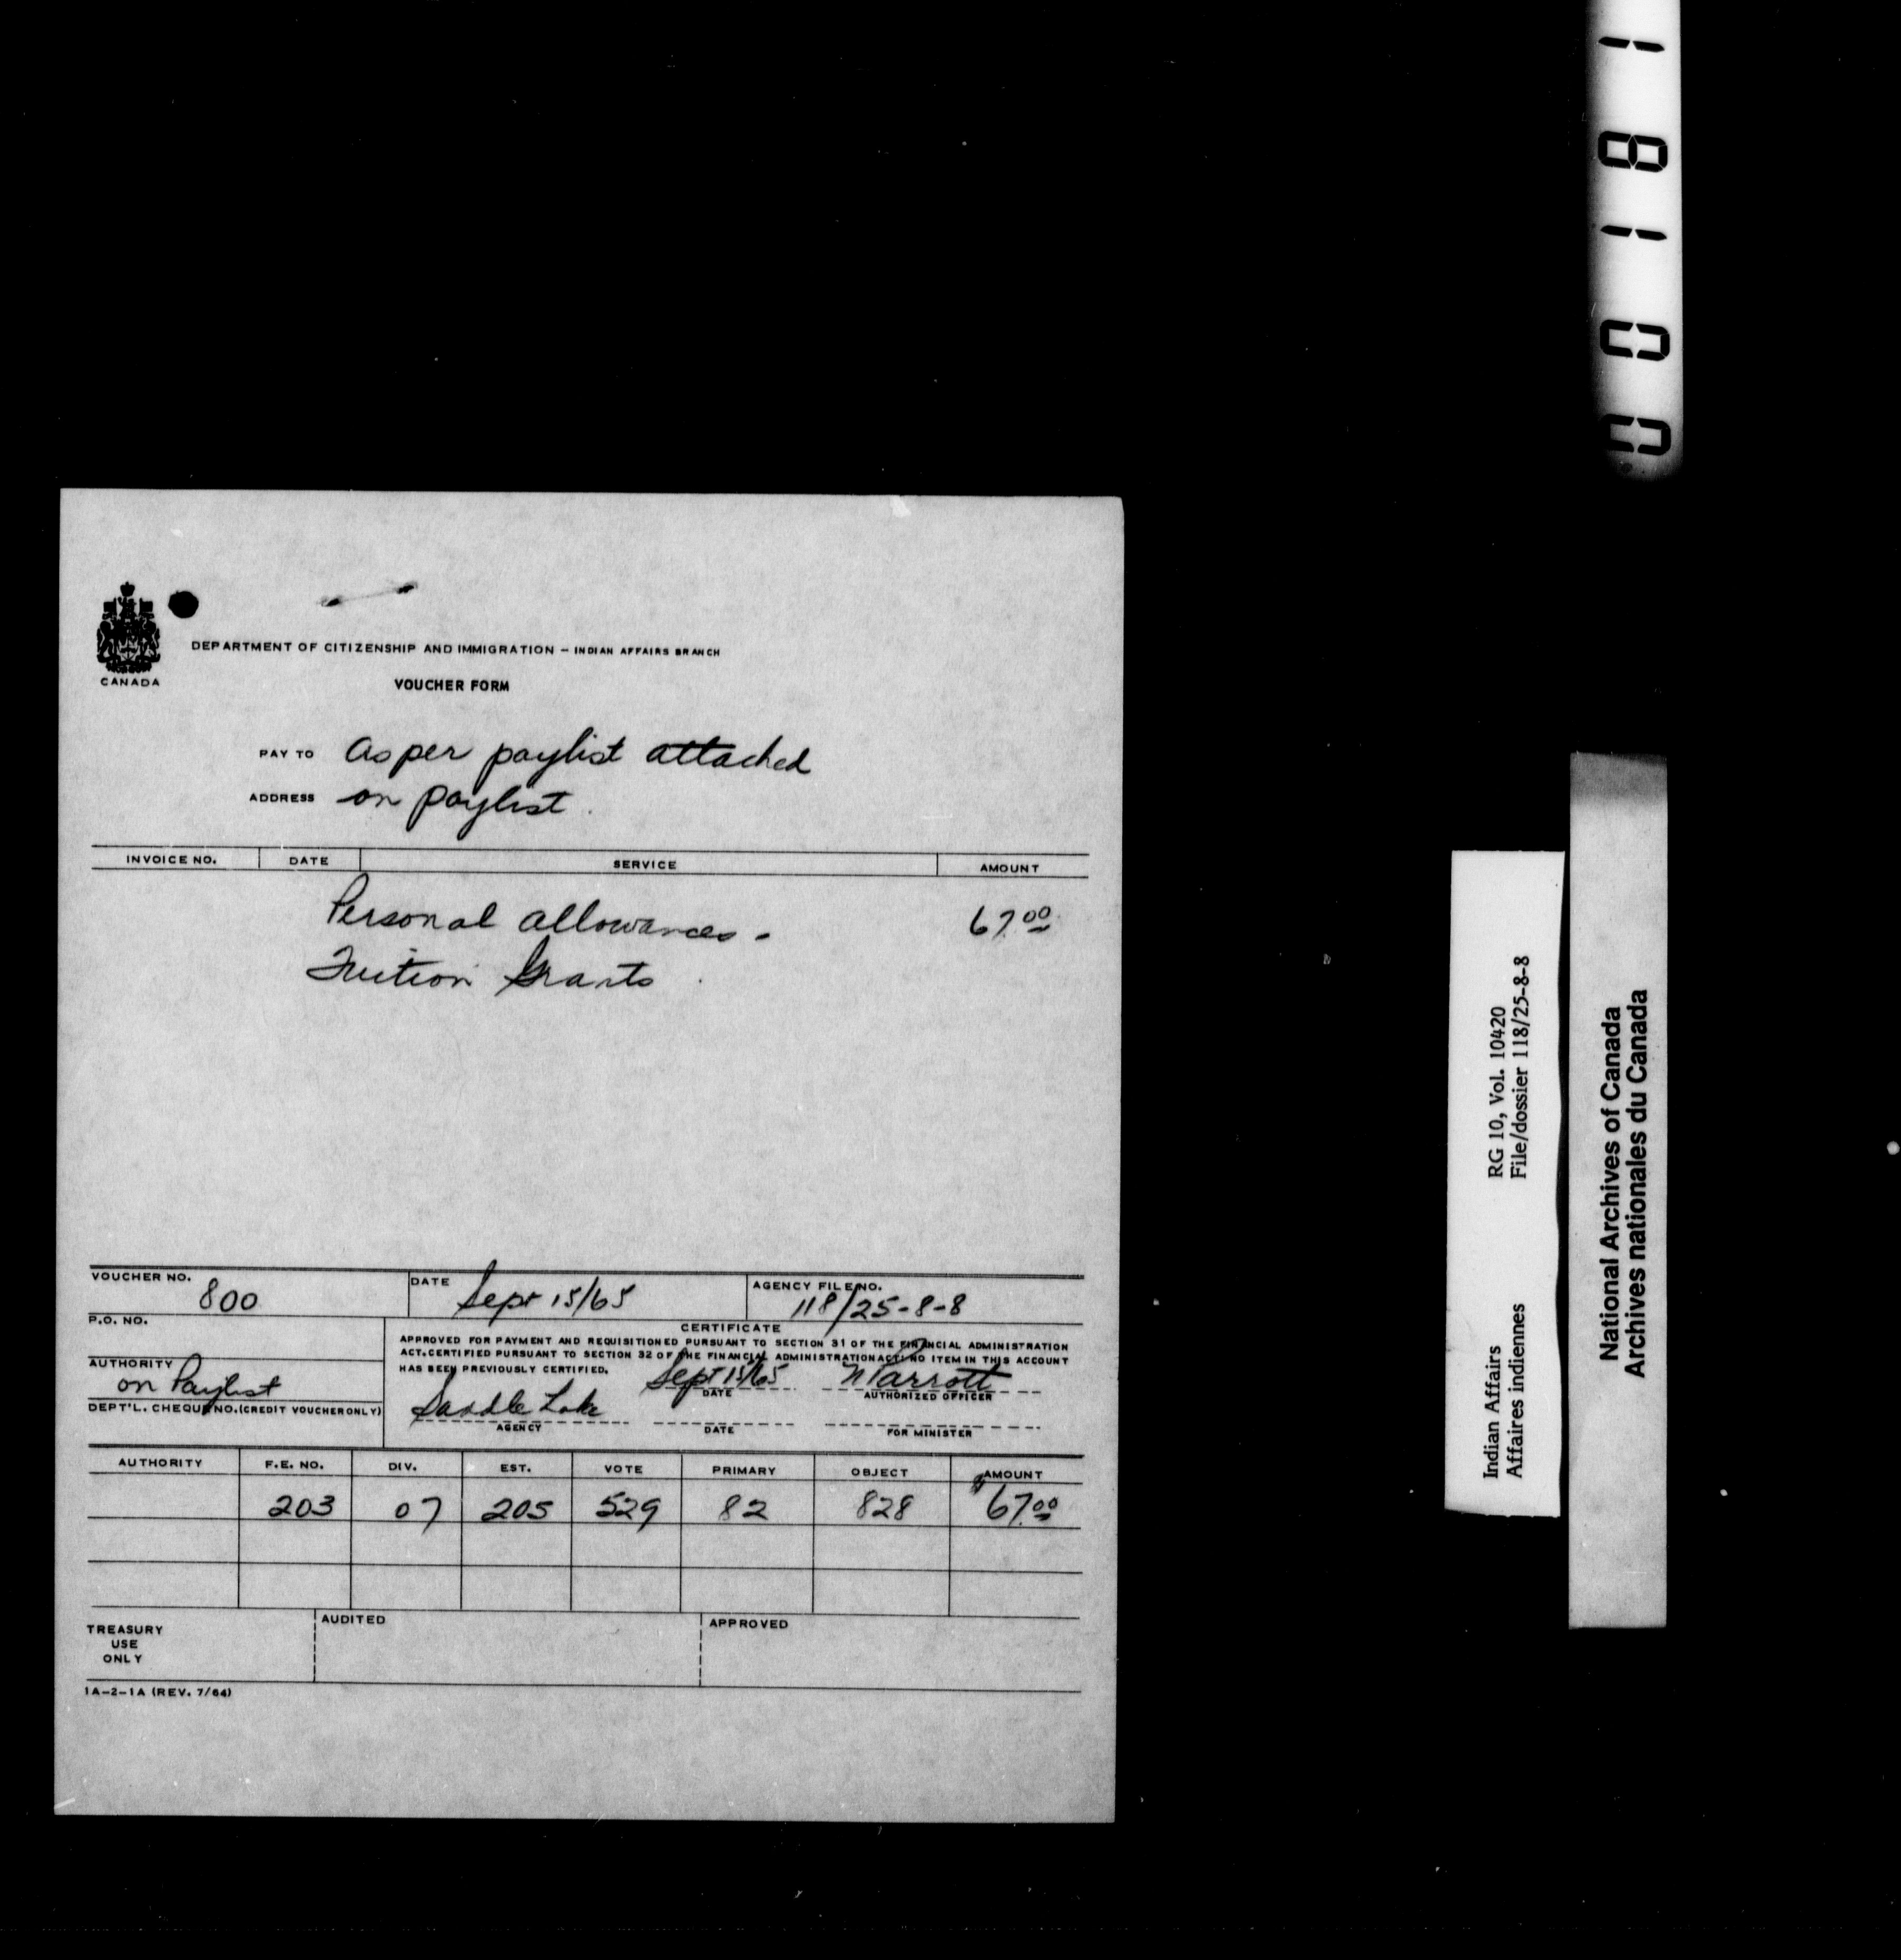 CANADA
DEPARTMENT OF CITIZENSHIP AND IMMIGRATION – INDIAN AFFAIRS BRANCH
VOUCHER FORM
PAY TO As per paylist attached
ADDRESS on paylist.
INVOICE NO. DATE SERVICE AMOUNT
Personal allowances - 67.00
Tuition Grants
VOUCHER NO. 800 DATE Sept 15/65 AGENCY FILE NO. 118/25-8-8
P.O. NO.
CERTIFICATE
APPROVED FOR PAYMENT AND REQUISITIONED PURSUANT TO SECTION 31 OF THE FINANCIAL ADMINISTRATION
ACT. CERTIFIED PURSUANT TO SECTION 32 OF THE FINANCIAL ADMINISTRATION ACT. NO ITEM IN THIS ACCOUNT
HAS BEEN PREVIOUSLY CERTIFIED.
AUTHORITY on Paylist
Sept 15/65 DATE AUTHORIZED OFFICER
DEPT'L. CHEQUE NO. (CREDIT VOUCHER ONLY)
Saddle Lake AGENCY DATE FOR MINISTER
AUTHORITY F.E. NO. DIV. EST. VOTE PRIMARY OBJECT AMOUNT
203 07 205 529 82 828 $67.00
TREASURY USE ONLY AUDITED APPROVED
1A-2-1A (REV. 7/64)
Indian Affairs RG 10, Vol. 10420
Affaires indiennes File/dossier 118/25-8-8
National Archives of Canada
Archives nationales du Canada
00181